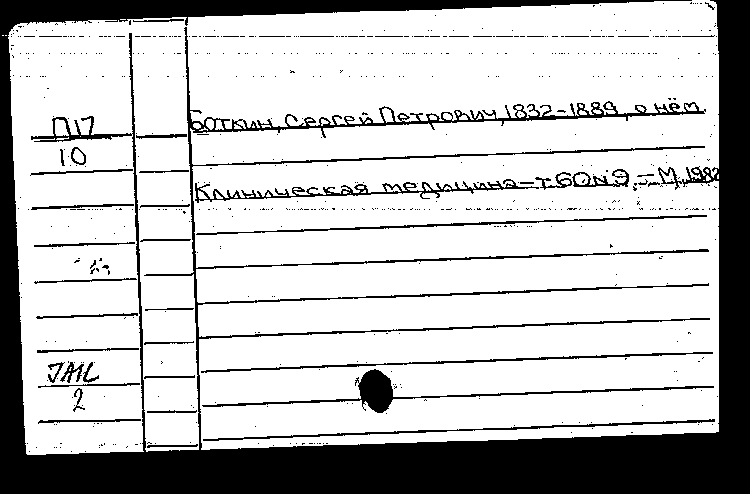 П17
10
Боткин, Сергей Петрович, 1832-1889, о нём.
Клиническая медицина - т.60 N9. - М., 1982
2